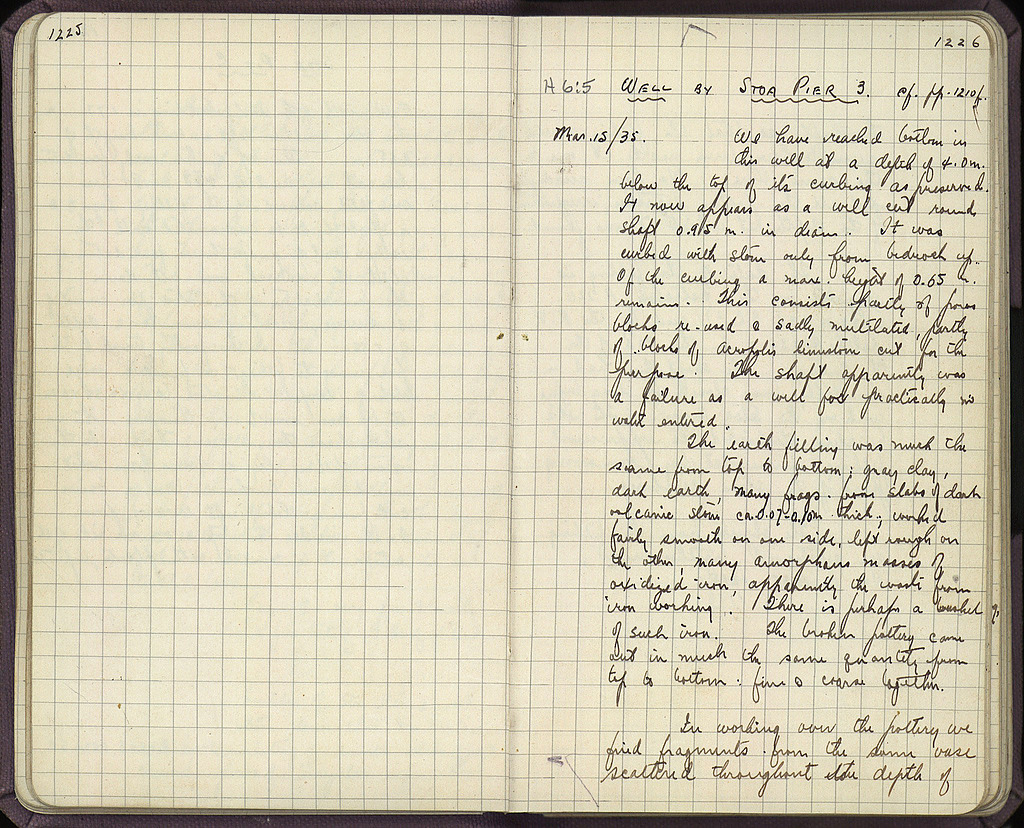 1225
1226
H 6:5 WELL BY STOA PIER 3. cf. pp. 1210f.
Mar. 15/35. We have reached bottom in
this well at a depth of 4.0 m.
below the top of its curbing as preserved.
It now appears as a well cut round
shaft 0.95 m. in diam. It was
curbed with stone only from bedrock up.
Of the curbing a max. height of 0.65 m.
remains. This consists partly of poros
blocks re-used & sadly mutilated, partly
of blocks of Acropolis limestone cut for the
purpose. The shaft apparently was
a failure as a well for practically no
water entered.
The earth filling was much the
same from top to bottom: gray clay,
dark earth, many frags. from slabs of dark
volcanic stone ca. 0.07-0.10m thick, worked
fairly smooth on one side, left rough on
the other, many amorphous masses of
oxidized iron, apparently the waste from
iron working. There is perhaps a bushel
of such iron. The broken pottery came
out in much the same quantity from
top to bottom: fine & coarse together.
In working over the pottery we
find fragments from the same vase
scattered throughout the depth of